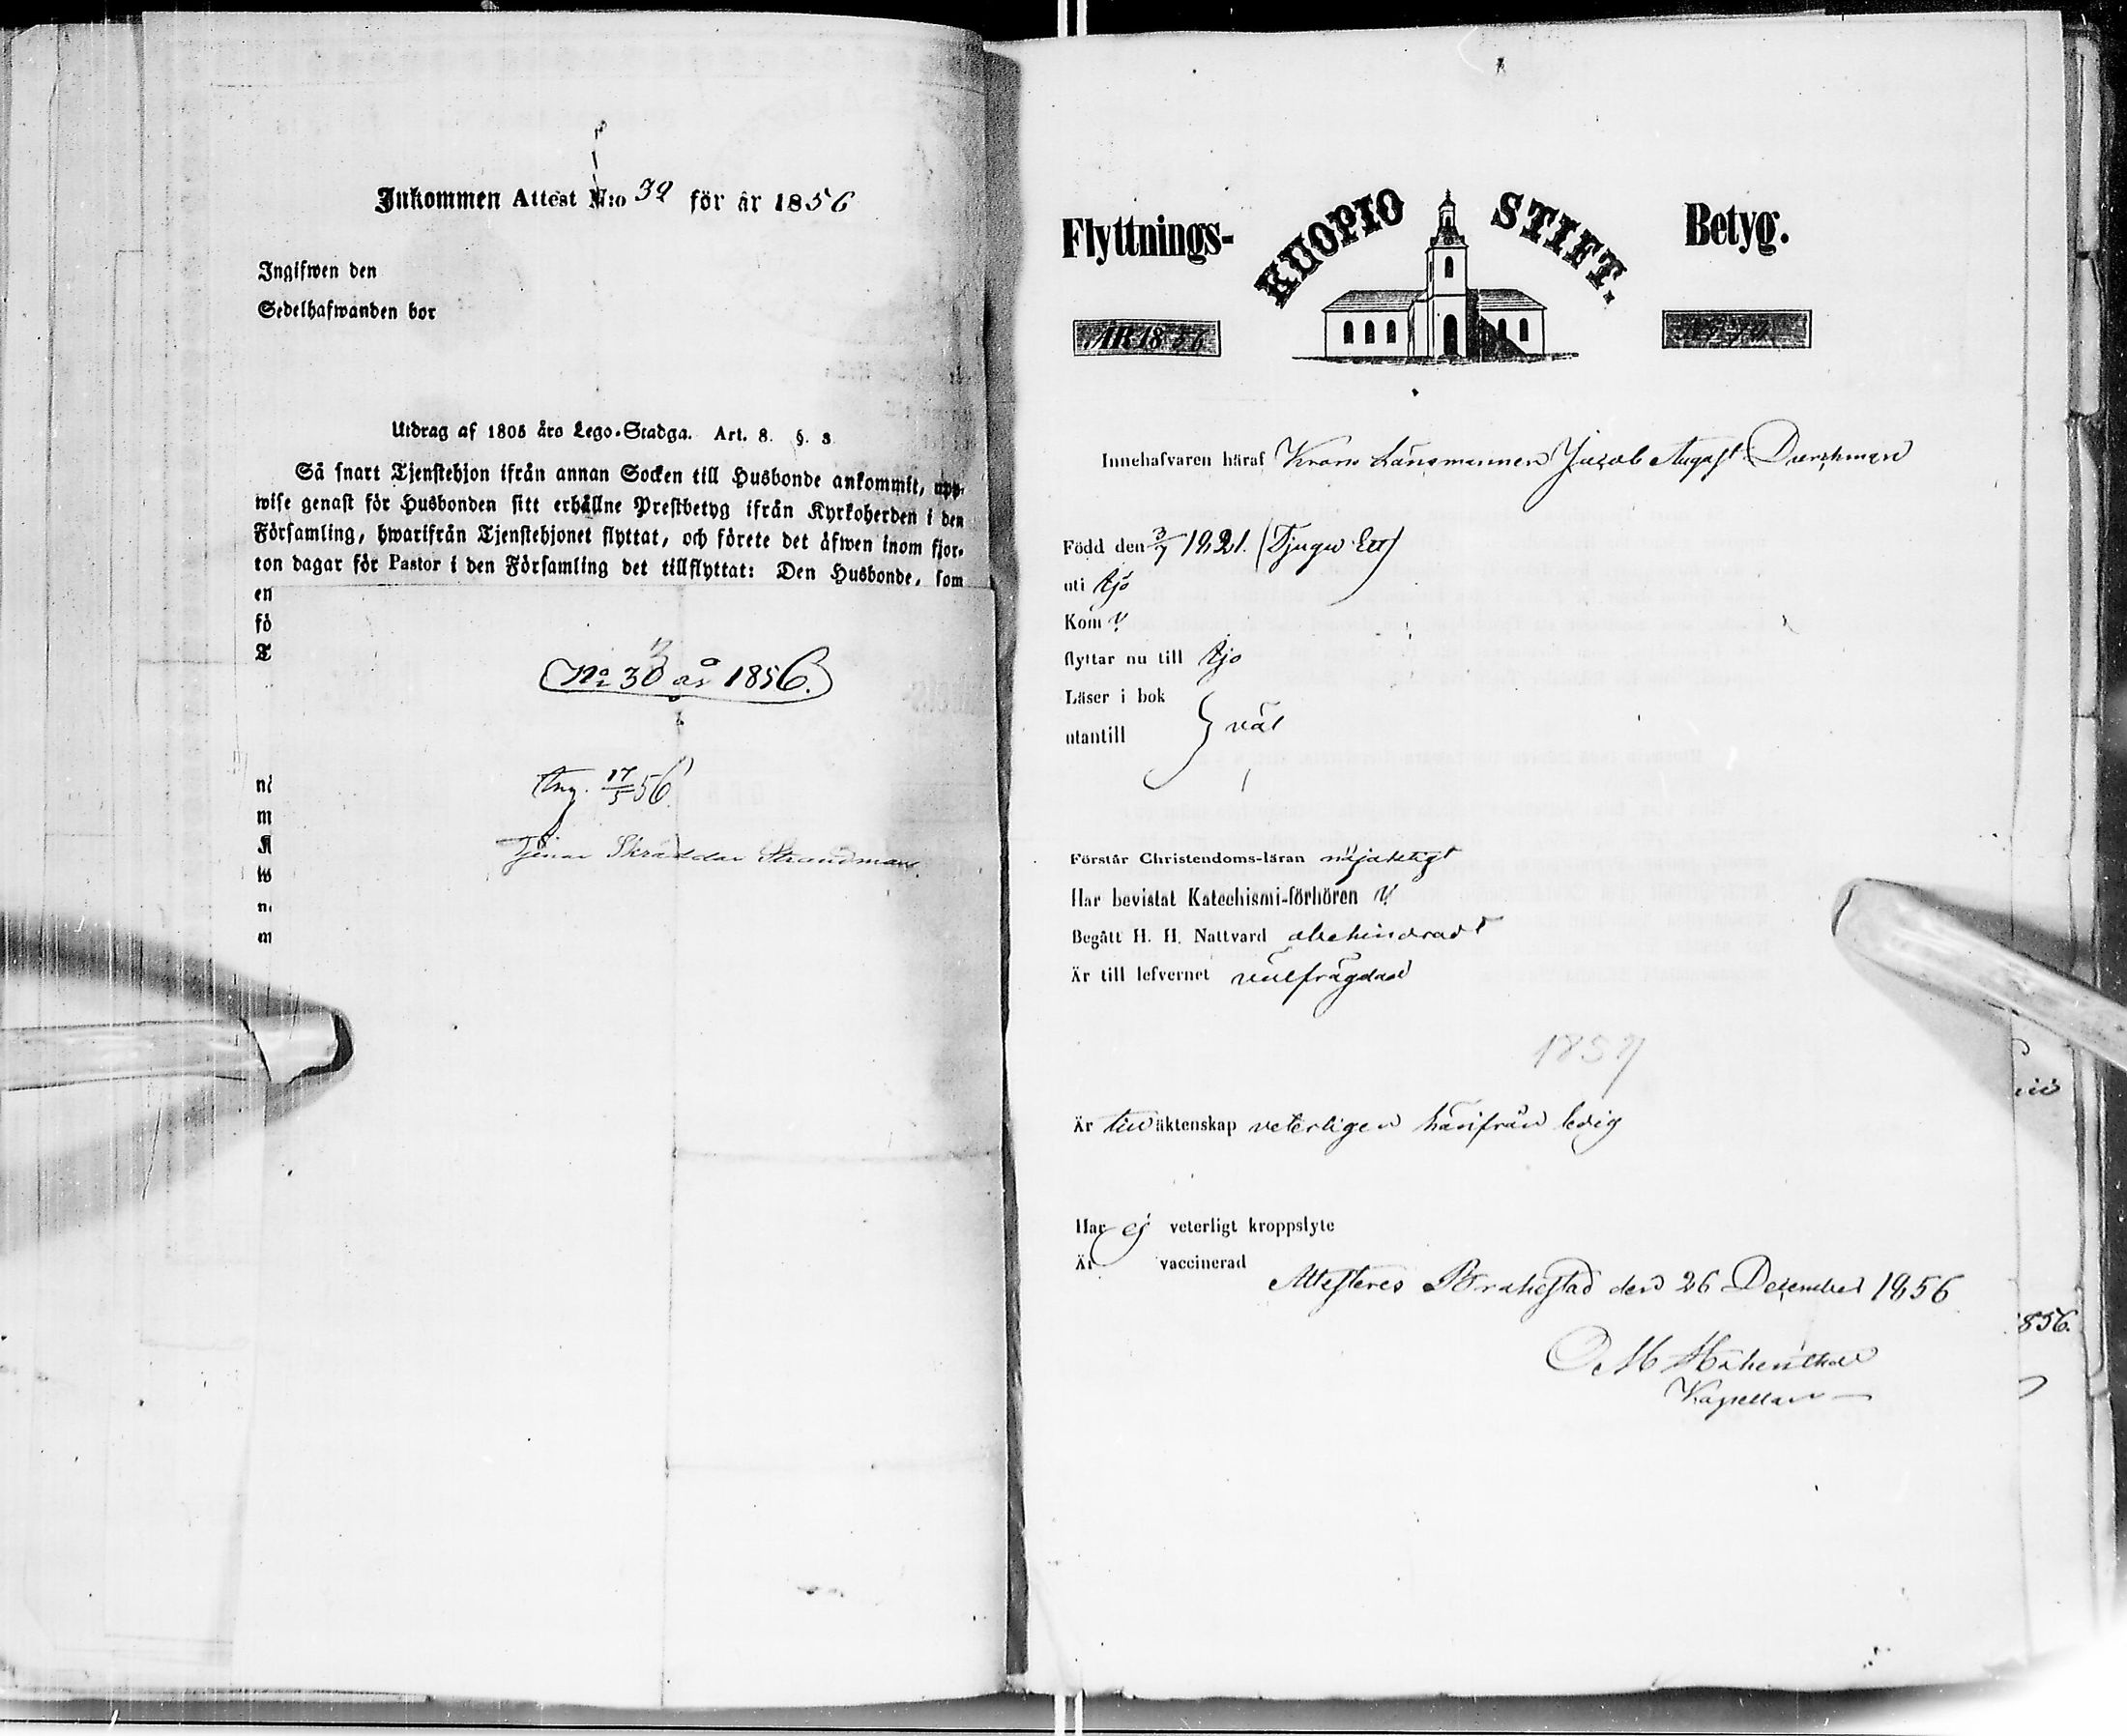 Inkommen Attest N:o 32 för år 1856
Ingifwen den
Sedelhafwanden bor
Utdrag af 1805 års Lego-Stadga. Art. 8. §. 3
Så snart Tjenstehjon ifrån annan Socken till Husbonde ankommit, upp-
wise genast för Husbonden sitt erhållne Prestbetyg ifrån Kyrkoherden i den
Församling, hwarifrån Tjenstehjonet flyttat, och förete det äfwen inom fjor-
ton dagar för Pastor i den Församling det tillflyttat: Den Husbonde, som
en
fö
T
No 30 år 1856.
3
ni
m
K
w
n
m
Ing. 17/5 56
Tjenar Skräddar Strandman
Flyttnings- KUOPIO STIFT. Betyg.
ÅR 1856
Innehafvaren häraf Krono Länsmannen Jacob August
Född den 3/7 1821. (Tjugu Ett)
uti
Kom
flyttar nu till
Läser i bok
utantill } väl
Förstår Christendoms-läran nöjaktigt
Har bevistat Katechismi-förhören
Begått H. H. Nattvard obehindradt
Är till lefvernet välfrägdad
1857
Är till äktenskap veterligen härifrån ledig
Har ej veterligt kroppslyte
Är vaccinerad
Attesteras Brahestad den 26 December 1856
1856.
Kapellan